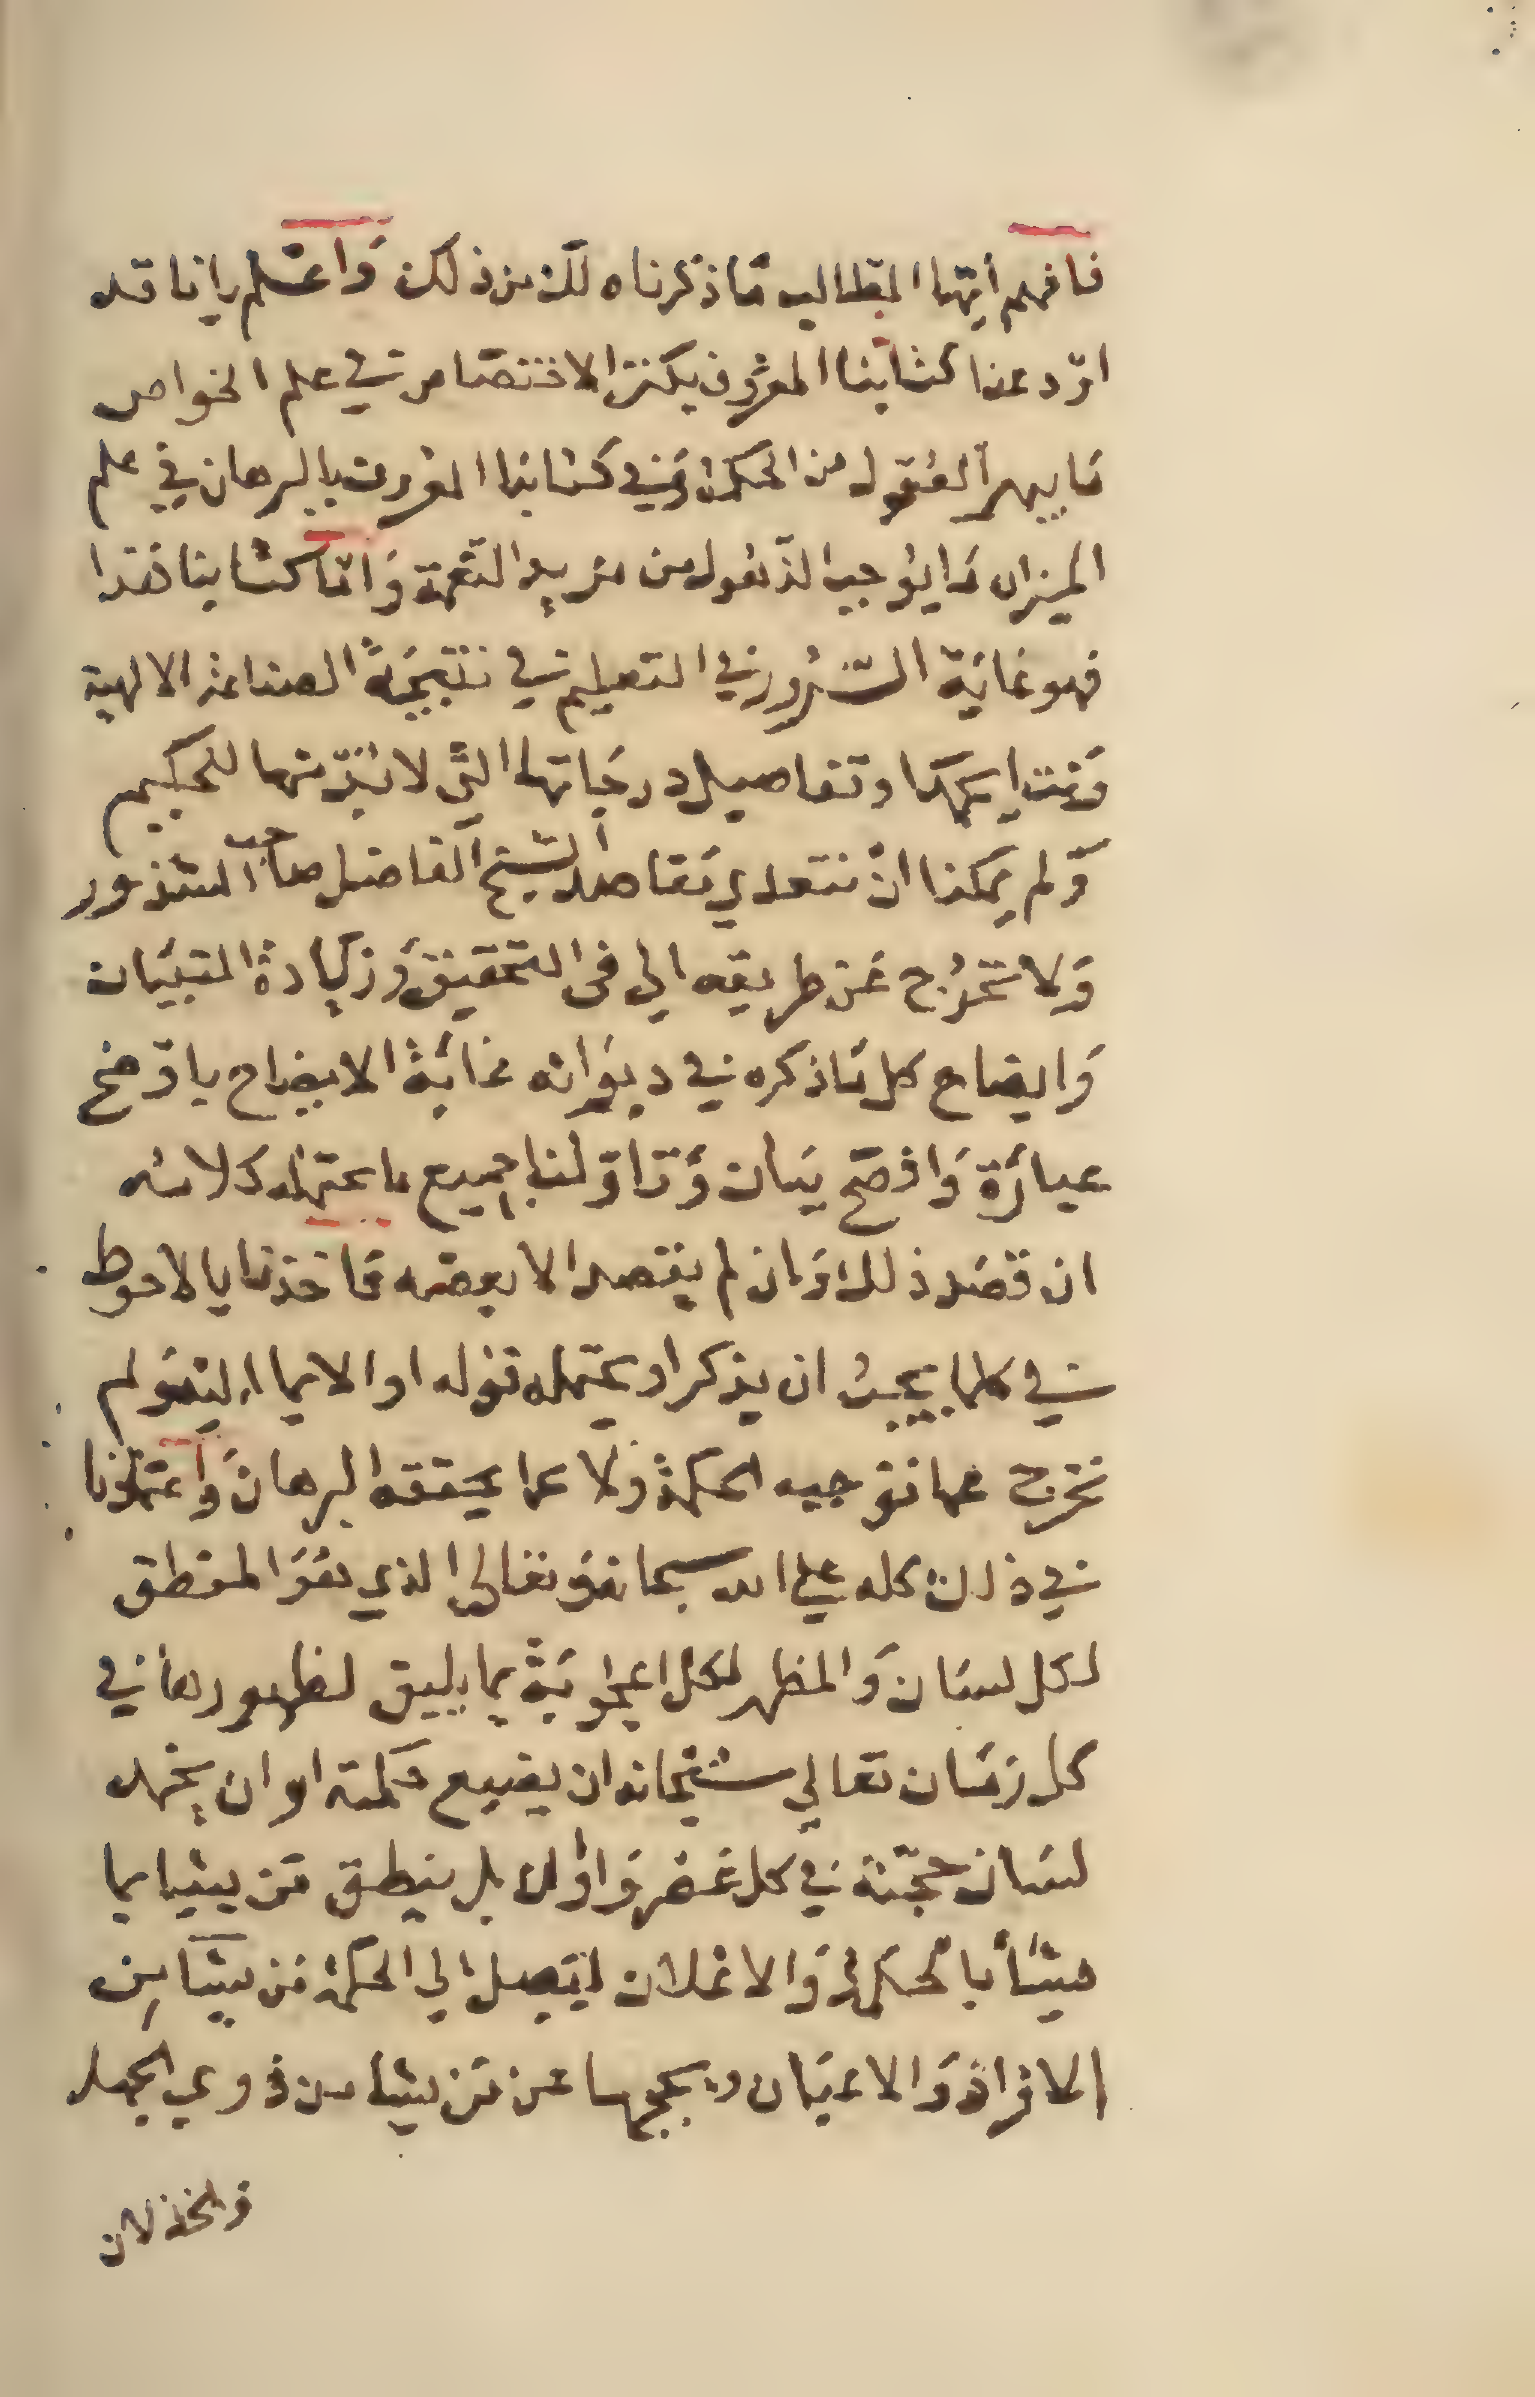 فافهم ايها الطالب ما ذكرناه لك من ذلك واعلم باننا قد
اودعنا كتابنا المعروف بكنز الاختصاص في علم الخواص
ما يبهر العقول من الحكمة وفي كتابنا المعروف بالبرهان في علم
الميزان ما يوجب الذهول من مزيد النعمة واما كتابنا هذا
فهو غاية السرور في التعليم في نتيجة الصناعة الالهية
ونتايجها وتفاصيل درجاتها التي لا بد منها للحكيم
ولم يمكنا ان نتعدى مقاصد الشيخ الفاضل صاحب الشذور
ولا نخرج عن طريقه الي في التحقيق وزيادة التبيان
وايضاح كل ما ذكره في ديوانه غاية الايضاح باوضح
عبارة وافصح بيان وتاولنا جميع ما يحتمله كلامه
ان قصد ذلك وان لم يقصد الا بعضه فاخذنا بالاحوط
في كلما يجب ان يذكر او يحتمله قوله او الايما اليه ولم
نخرج عما توجبه الحكمة ولا عما يحققه البرهان واعتمادنا
في ذلك كله علي الله سبحانه وتعالي الذي هو المنطق
لكل لسان والمظهر لكل اعجوبة بما يليق لظهورها في
كل زمان تعالي سبحانه ان يضيع حكمته او ان يخمد
لسان حجته في كل عصر واوان بل ينطق من يشا بما
يشا بالحكمة والاعلان ليتصل الي الحكمة من يشا من
الافراد والاعيان ويحجبها عن من يشا من ذوي الجهل
والخذلان